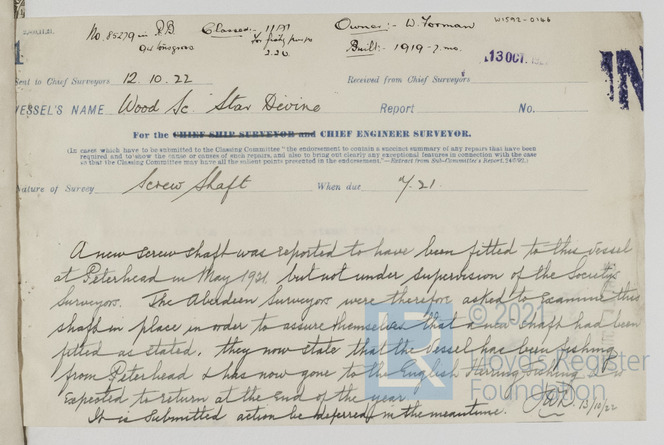 No. 85279 in R.B. Classed:- 11 A1 Owner:- W. Forman W1592-0146
for fishing purposes Built:- 1919-7 mo.
2.20
13 OCT. 192
Sent to Chief Surveyors 12.10.22 Received from Chief Surveyors
VESSEL'S NAME Wood Sc. Star Divine Report No.
For the CHIEF SHIP SURVEYOR and CHIEF ENGINEER SURVEYOR.
(In cases which have to be submitted to the Classing Committee "the endorsement to contain a succinct summary of any repairs that have been
required and to show the cause or causes of such repairs, and also to bring out clearly any exceptional features in connection with the case
so that the Classing Committee may have all the salient points presented in the endorsement."—Extract from Sub-Committee's Report,
Nature of Survey Screw Shaft When due 7.21.
A new screw shaft was reported to have been fitted to this vessel
at Peterhead in May 1921, but not under supervision of the Society's
Surveyors. The Aberdeen Surveyors were therefore asked to examine this
shaft in place in order to assure themselves that a new shaft had been
fitted as stated. they now state that the vessel has been fishing
from Peterhead & has now gone to the English Herring fishing & is
expected to return at the end of the year.
It is submitted action be deferred in the meantime. 13/10/22
© 2021
Lloyd's Register
Foundation
LR